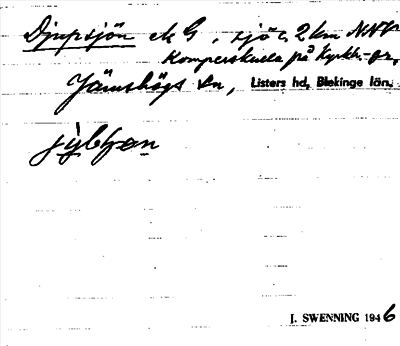 Djupsjön ek G, sjö c. 2 km NNV
Komperskulla på Kyrkh.-
Jämshögs sn, Listers hd, Blekinge län.
I. SWENNING 1946